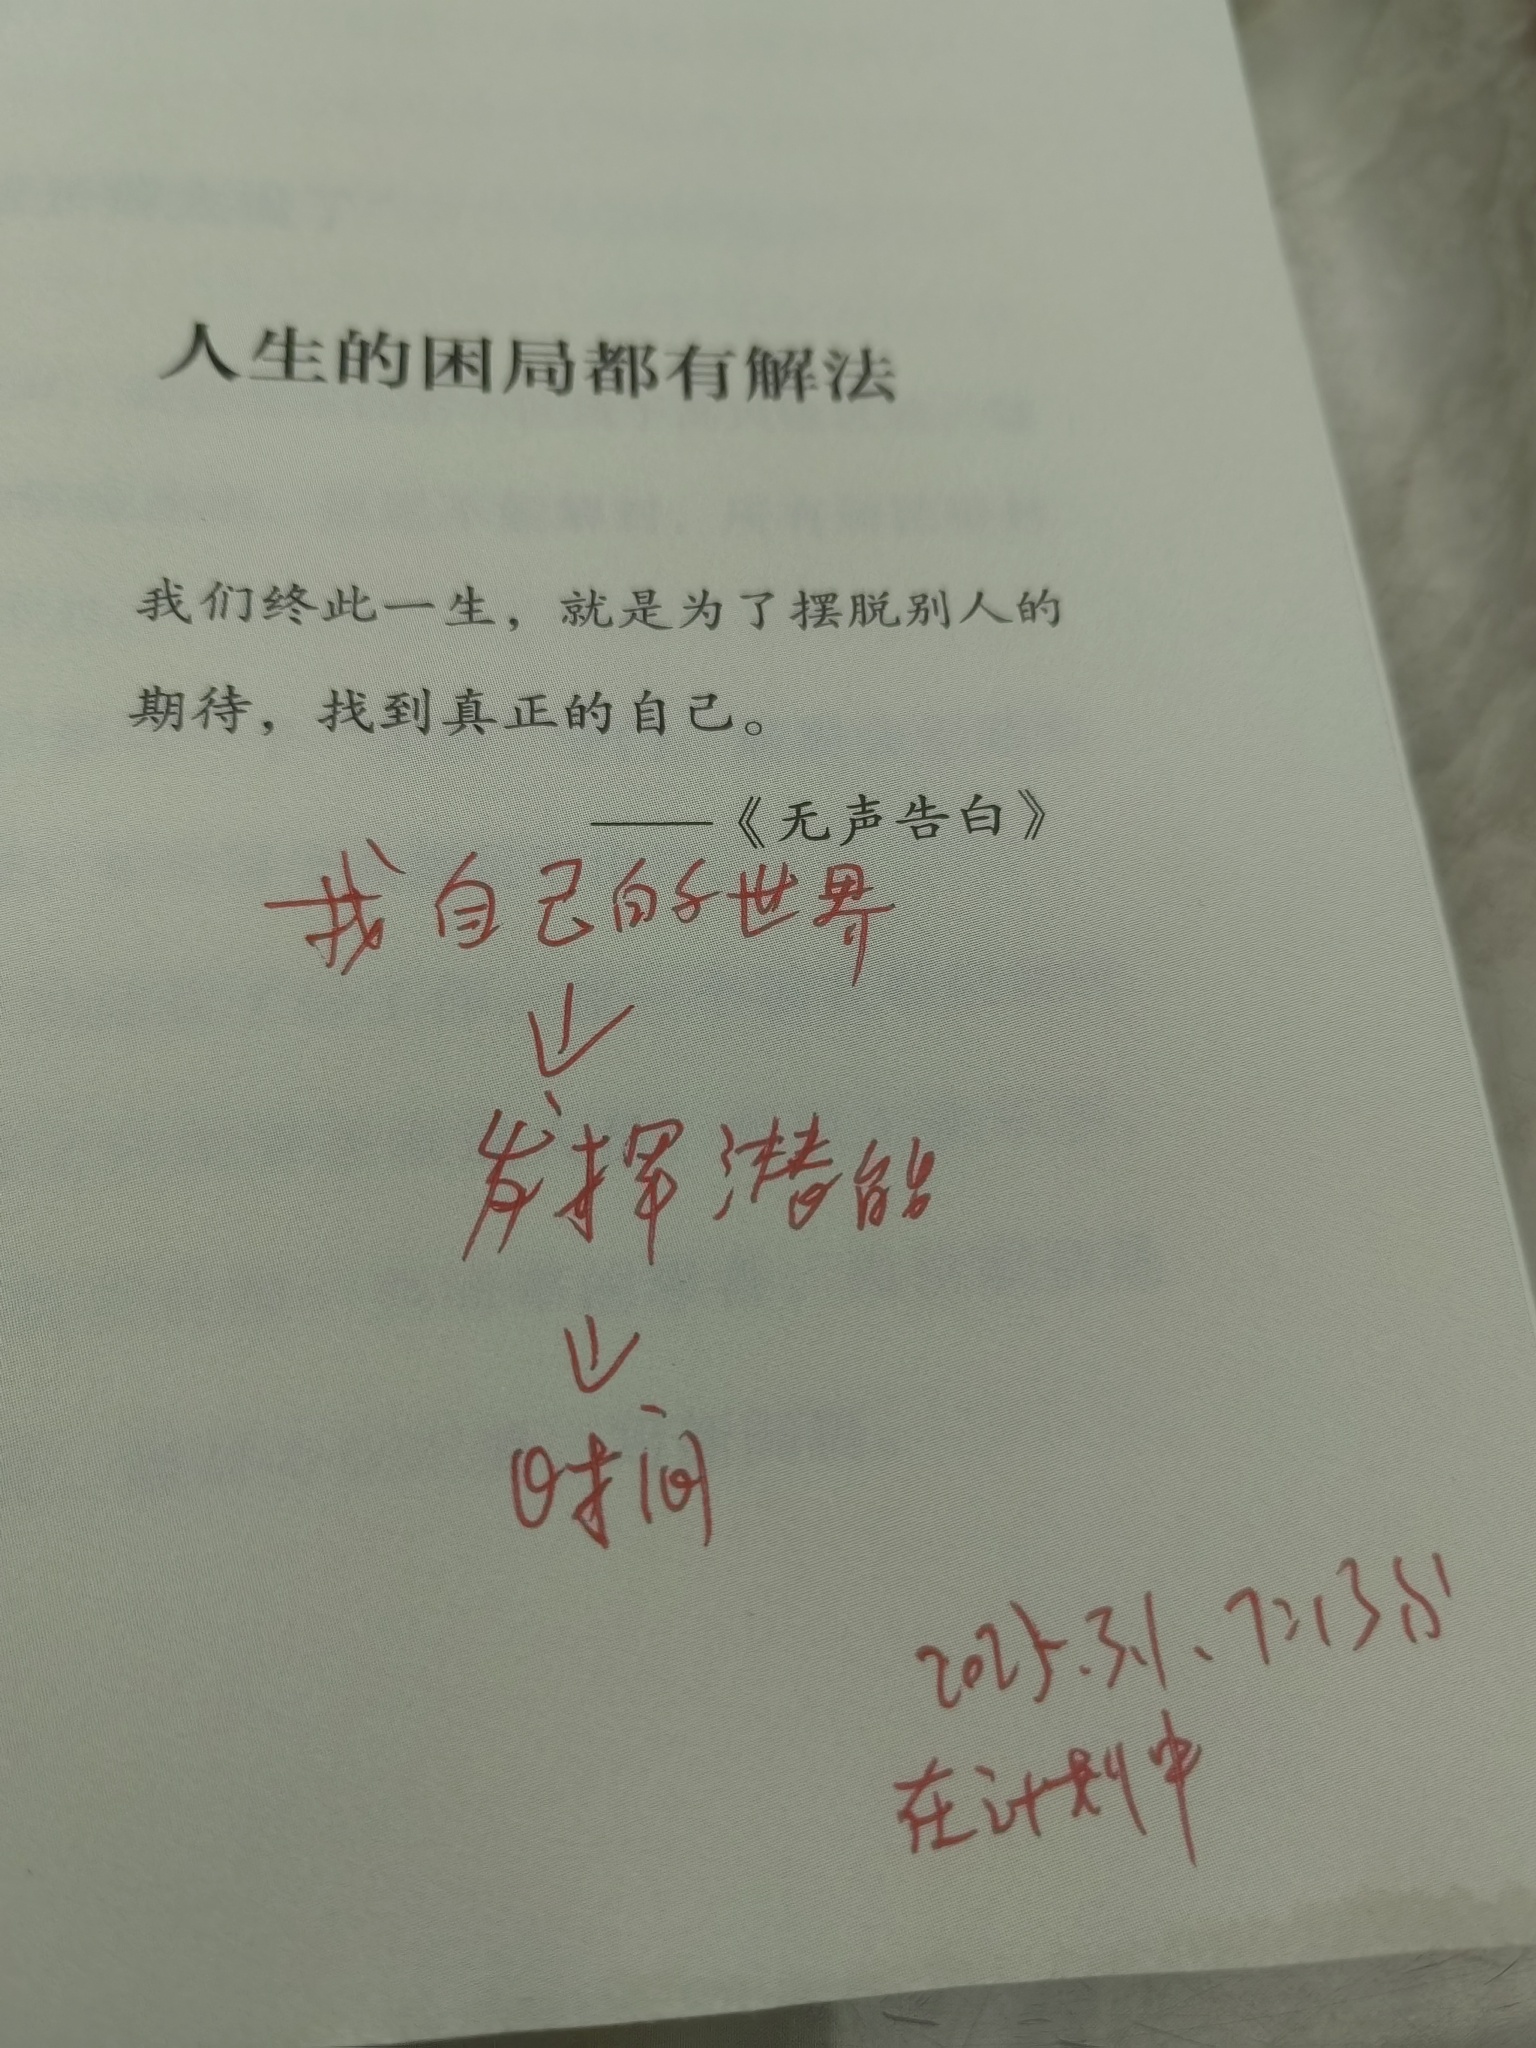 人生的困局都有解法
我们终此一生，就是为了摆脱别人的
期待，找到真正的自己。
——《无声告白》
找自己的世界
↓
发挥潜能
↓
时间
2025.3.1、7:13分
在计划中